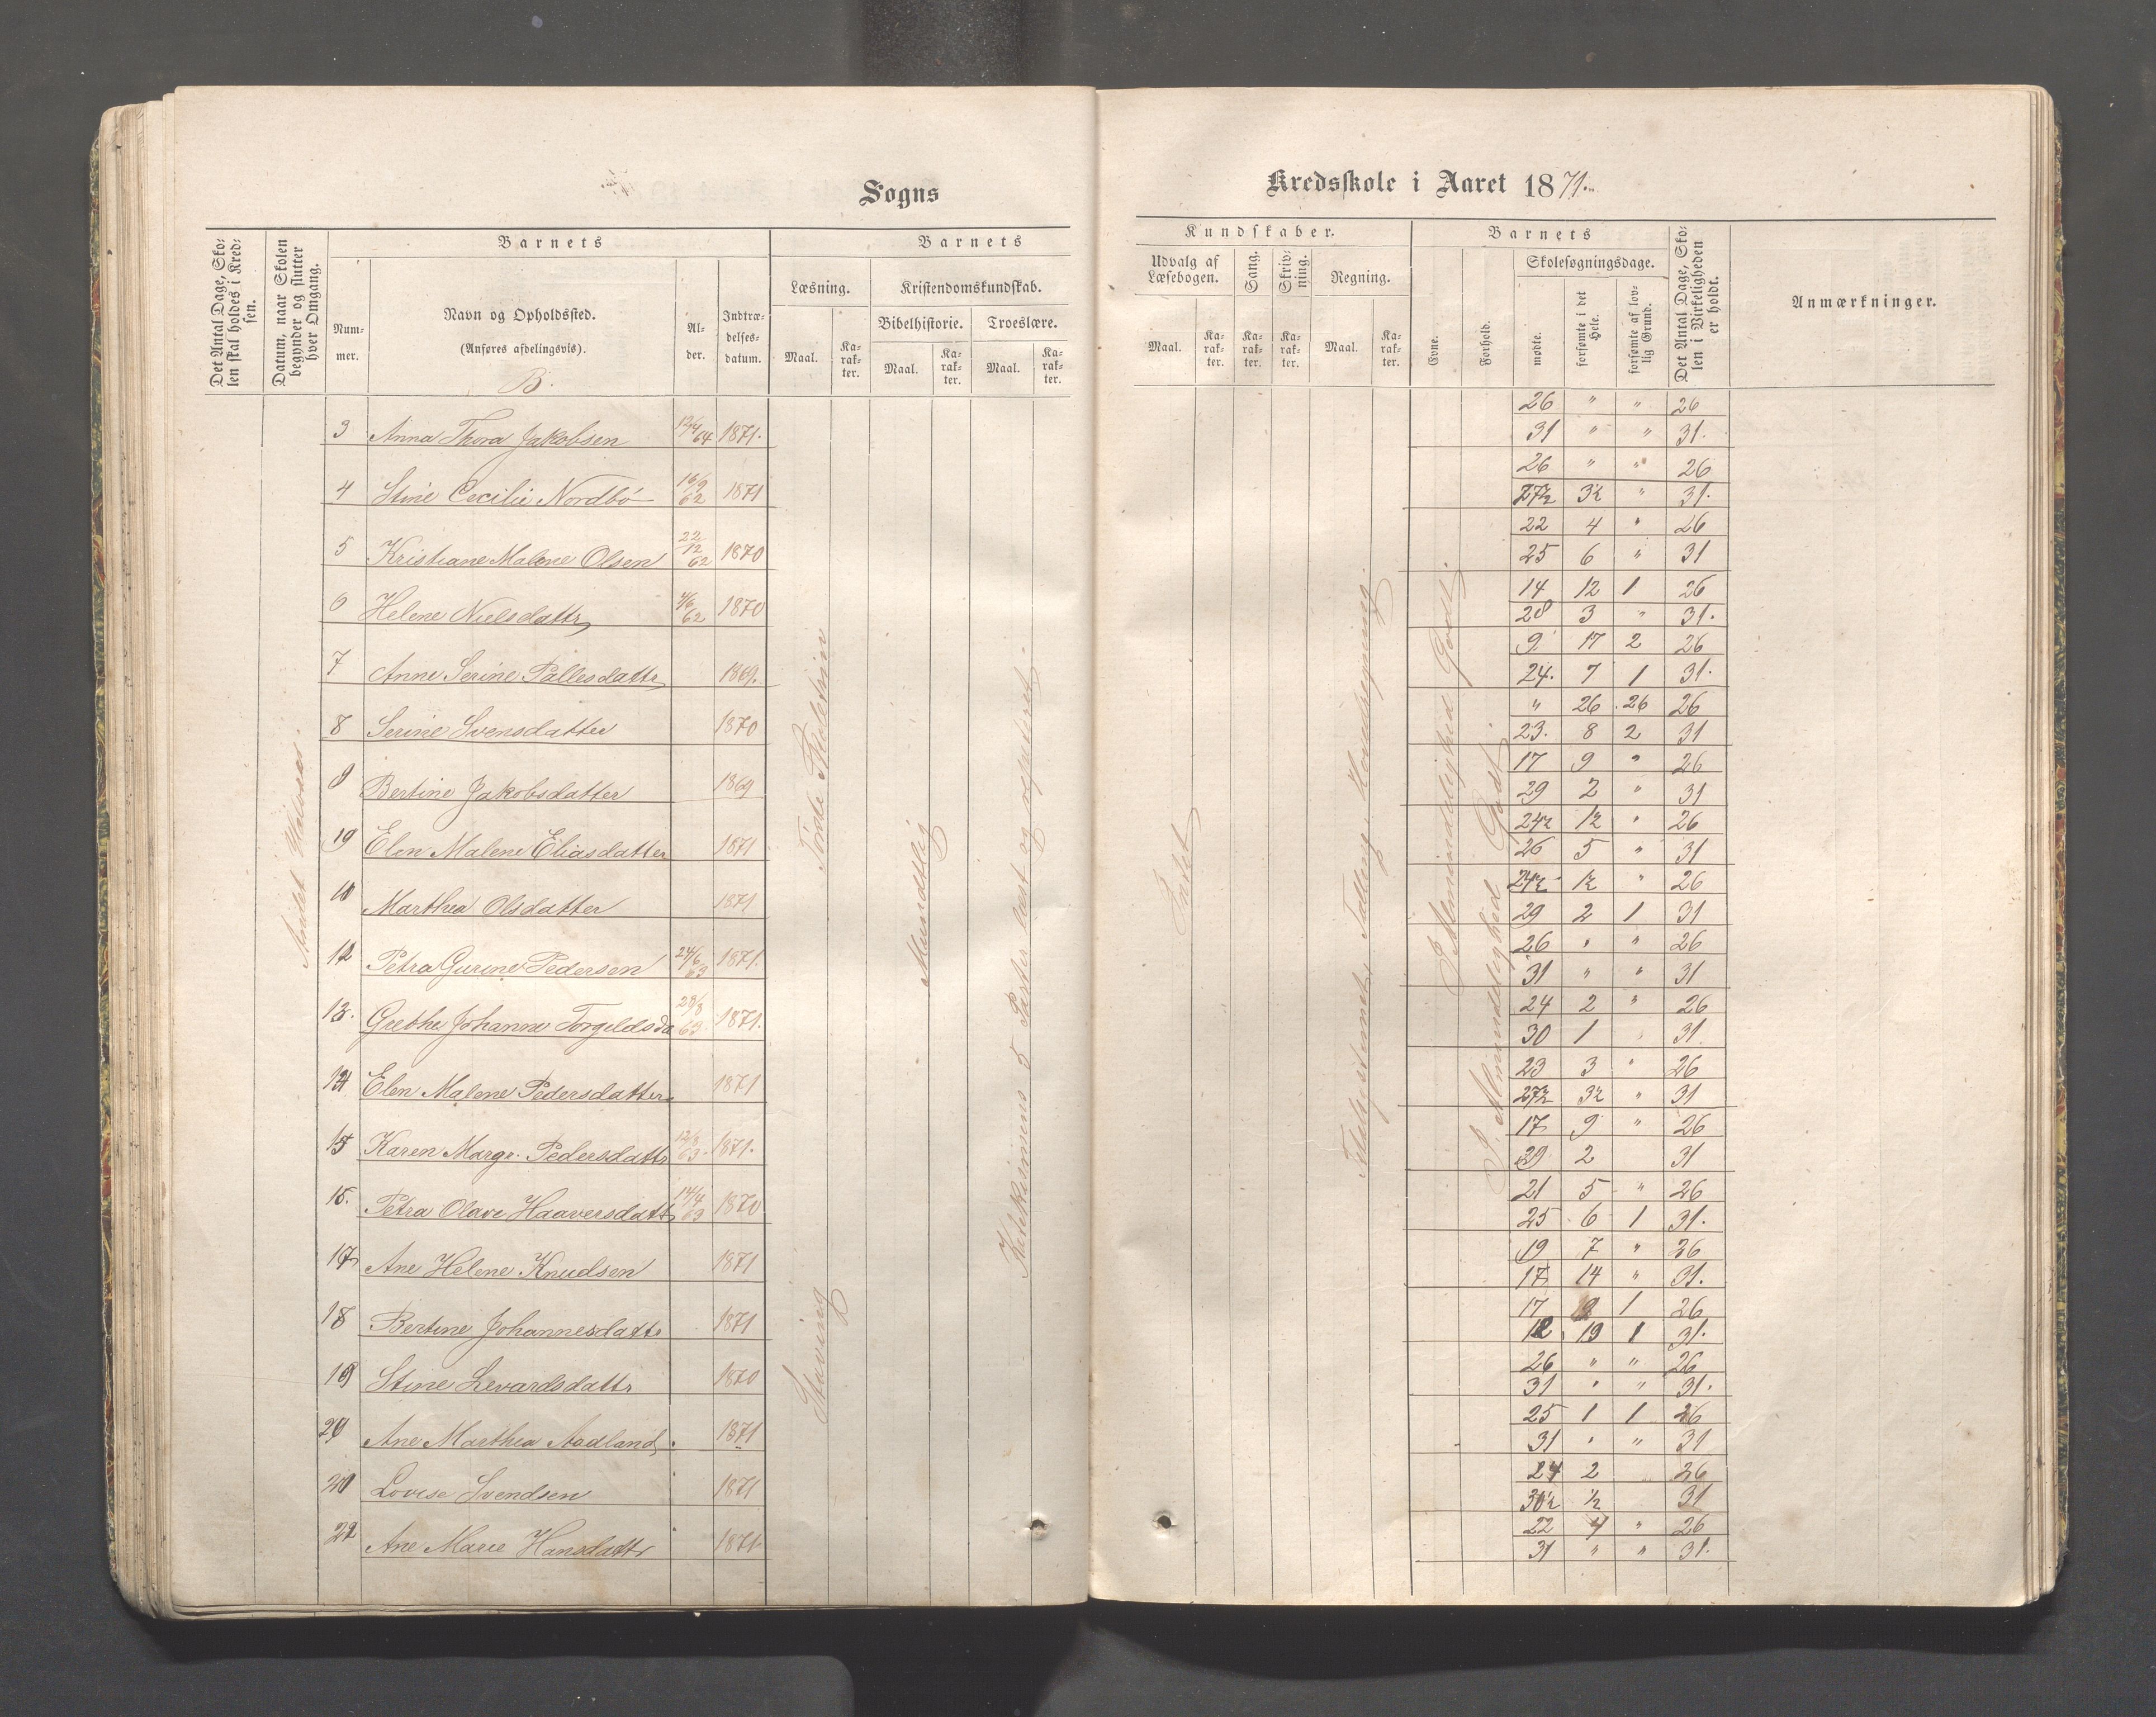 Sogns
Kredsskole i Aaret 1871.
Det Antal Dage, Skolen skal holdes i Kredsen.
Datum, naar Skolen begynder og slutter hver Omgang.
Barnets
Nummer.
Navn og Opholdssted.
(Anføres afdelingsvis).
B.
Alder.
Indtrædelsesdatum.
Barnets
Læsning.
Kristendomskundskab.
Bibelhistorie. Troeslære.
Maal. Karakter. Maal. Karakter. Maal. Karakter.
Kundskaber.
Udvalg af Læsebogen.
Sang.
Skrivning.
Regning.
Maal. Karakter. Karakter. Karakter. Maal. Karakter.
Barnets
Evne.
Forhold.
Skolesøgningsdage.
mødte.
forsømte i det Hele.
forsømte af lovlig Grund.
Det Antal Dage, Skolen i Virkeligheden er holdt.
Anmærkninger.
26 " " 26
3 Anna Thora Jakobsen 12/4 64 1871. 31 " " 31.
26 " " 26
4 Stine Cecilie Nordbö 16/9 62 1871 27½ 3½ " 31.
22 4 " 26
5 Kristiane Malene Olsen 22/12 62 1870 25 6 " 31
14 12 1 26
6 Helene Nielsdattr 4/6 62 1870 28 3 " 31.
9 17 2 26
7 Anne Serine Pallesdattr 1869. 24. 7 1 31.
" 26 26 26
8 Serine Svensdatter 1870 23. 8 2 31
17 9 " 26
9 Bertine Jakobsdatter 1869 29 2 " 31
24½ 1½ " 26
10 Elen Malene Eliasdatter 1871 26 5 " 31
24½ 1½ " 26
11 Marthea Olsdatter 1871 29 2 1 31
26 " " 26
12 Petra Gurine Pedersen 24/6 63 1871. 31 " " 31
24 2 " 26
13. Grethe Johanne Torgeldsda 1871. 30 1 31
23 3 " 26
14 Elen Malene Pedersdatter 1871 27½ 3½ " 31
17 9 " 26
15 Karen Margr. Pedersdattr 1871. 29 2 31
21 5 " 26
16. Petra Olave Haaversdattr 14/4 63 1870 25 6 1 31.
19 7 " 26
17 Ane Helene Knudsen 1871 17 14 " 31.
17 9 1 26
18 Bertine Johannesdattr 1871 12 19 1 31.
26 " " 26
19 Stine Levardsdattr 1870 31 " " 31.
25 1 1 26
20 Ane Marthea Aadland 1871 31 " " 31
24 2 26
21 Lovise Svendsen 1871 30½ ½ 31
22 4 " 26
22 Ane Marie Hansdattr 1871 31 " " 31.
Andet Halvaar.
Staving
Mundtlig
Katekismus 5 Parter læst og
Intet
Tælling, Hovedregning.
I Almindelighed Godt.
I Almindelighed Godt.